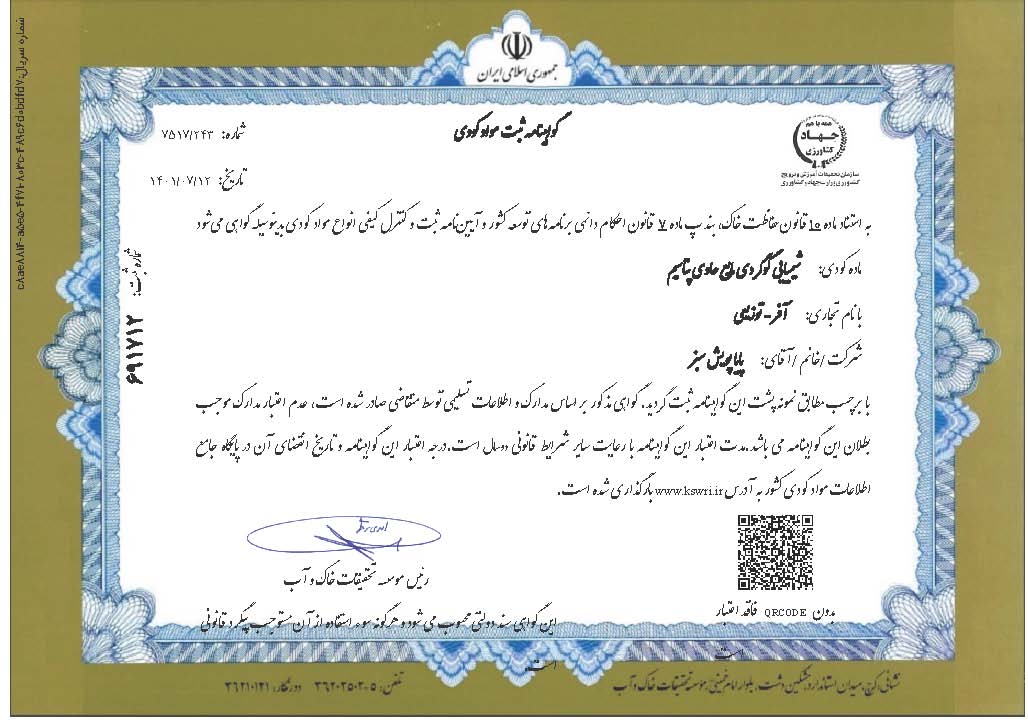 جمهوری اسلامی ایران
همه با هم
جهاد
کشاورزی
سازمان تحقیقات، آموزش و ترویج
کشاورزی وزارت جهاد کشاورزی
گواهینامه ثبت مواد کودی
شماره: ۷۵۱۷/۲۴۳
تاریخ: ۱۴۰۱/۰۷/۱۲
به استناد ماده ۱۵ قانون حفاظت خاک، بند پ ماده ۷ قانون احکام دائمی برنامه های توسعه کشور و آیین‌نامه ثبت و کنترل کیفی انواع مواد کودی بدینوسیله گواهی می شود
ماده کودی: شیمیایی گوگردی مایع حاوی پتاسیم
با نام تجاری: آفر-
شرکت/خانم/آقای: پایا پویش سبز
با برچسب مطابق نمونه پشت این گواهینامه ثبت گردید. گواهی مذکور بر اساس مدارک و اطلاعات تسلیمی توسط متقاضی صادر شده است، عدم اعتبار مدارک موجب
بطلان این گواهینامه می باشد. مدت اعتبار این گواهینامه با رعایت سایر شرایط قانونی دو سال است. درجه اعتبار این گواهینامه و تاریخ انقضای آن در پایگاه جامع
اطلاعات مواد کودی کشور به آدرس www.kswri.ir بارگذاری شده است.
شماره ثبت: ۶۹۱۷۱۲
رئیس موسسه تحقیقات خاک و آب
بدون QRCODE فاقد اعتبار
است
این گواهی سند دولتی محسوب می شود و هرگونه سوء استفاده از آن مستوجب پیگرد قانونی
است.
نشانی: کرج، میدان استاندارد، مشکین دشت، بلوار امام خمینی، موسسه تحقیقات خاک و آب تلفن: ۵-۳۶۲۰۳۵۰۲ دورنگار: ۳۶۲۱۰۱۲۱
شماره سریال: